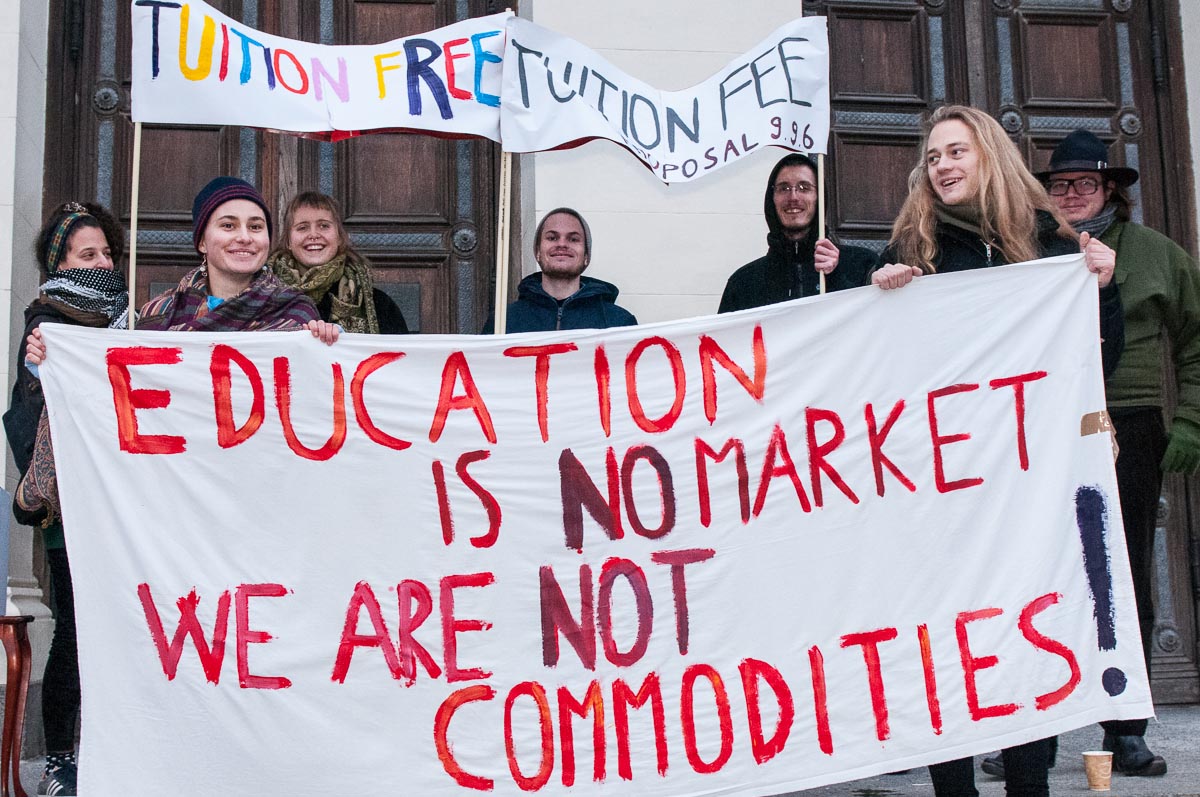 TUITION FREE
TUITION FEE
9.9.6
EDUCATION
IS NO MARKET
WE ARE NOT
COMMODITIES!